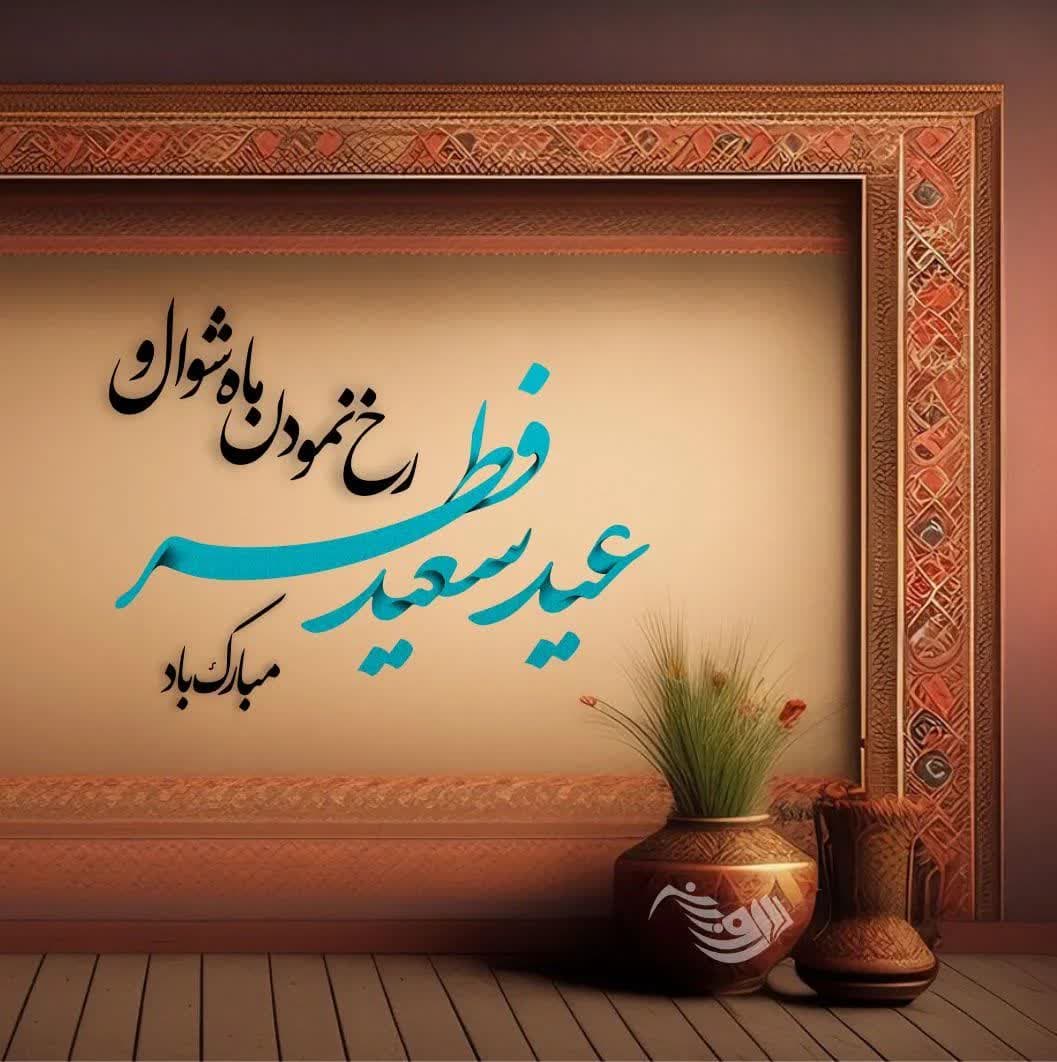 رخ نمودن ماه شوال و
عید سعید فطر
مبارک باد